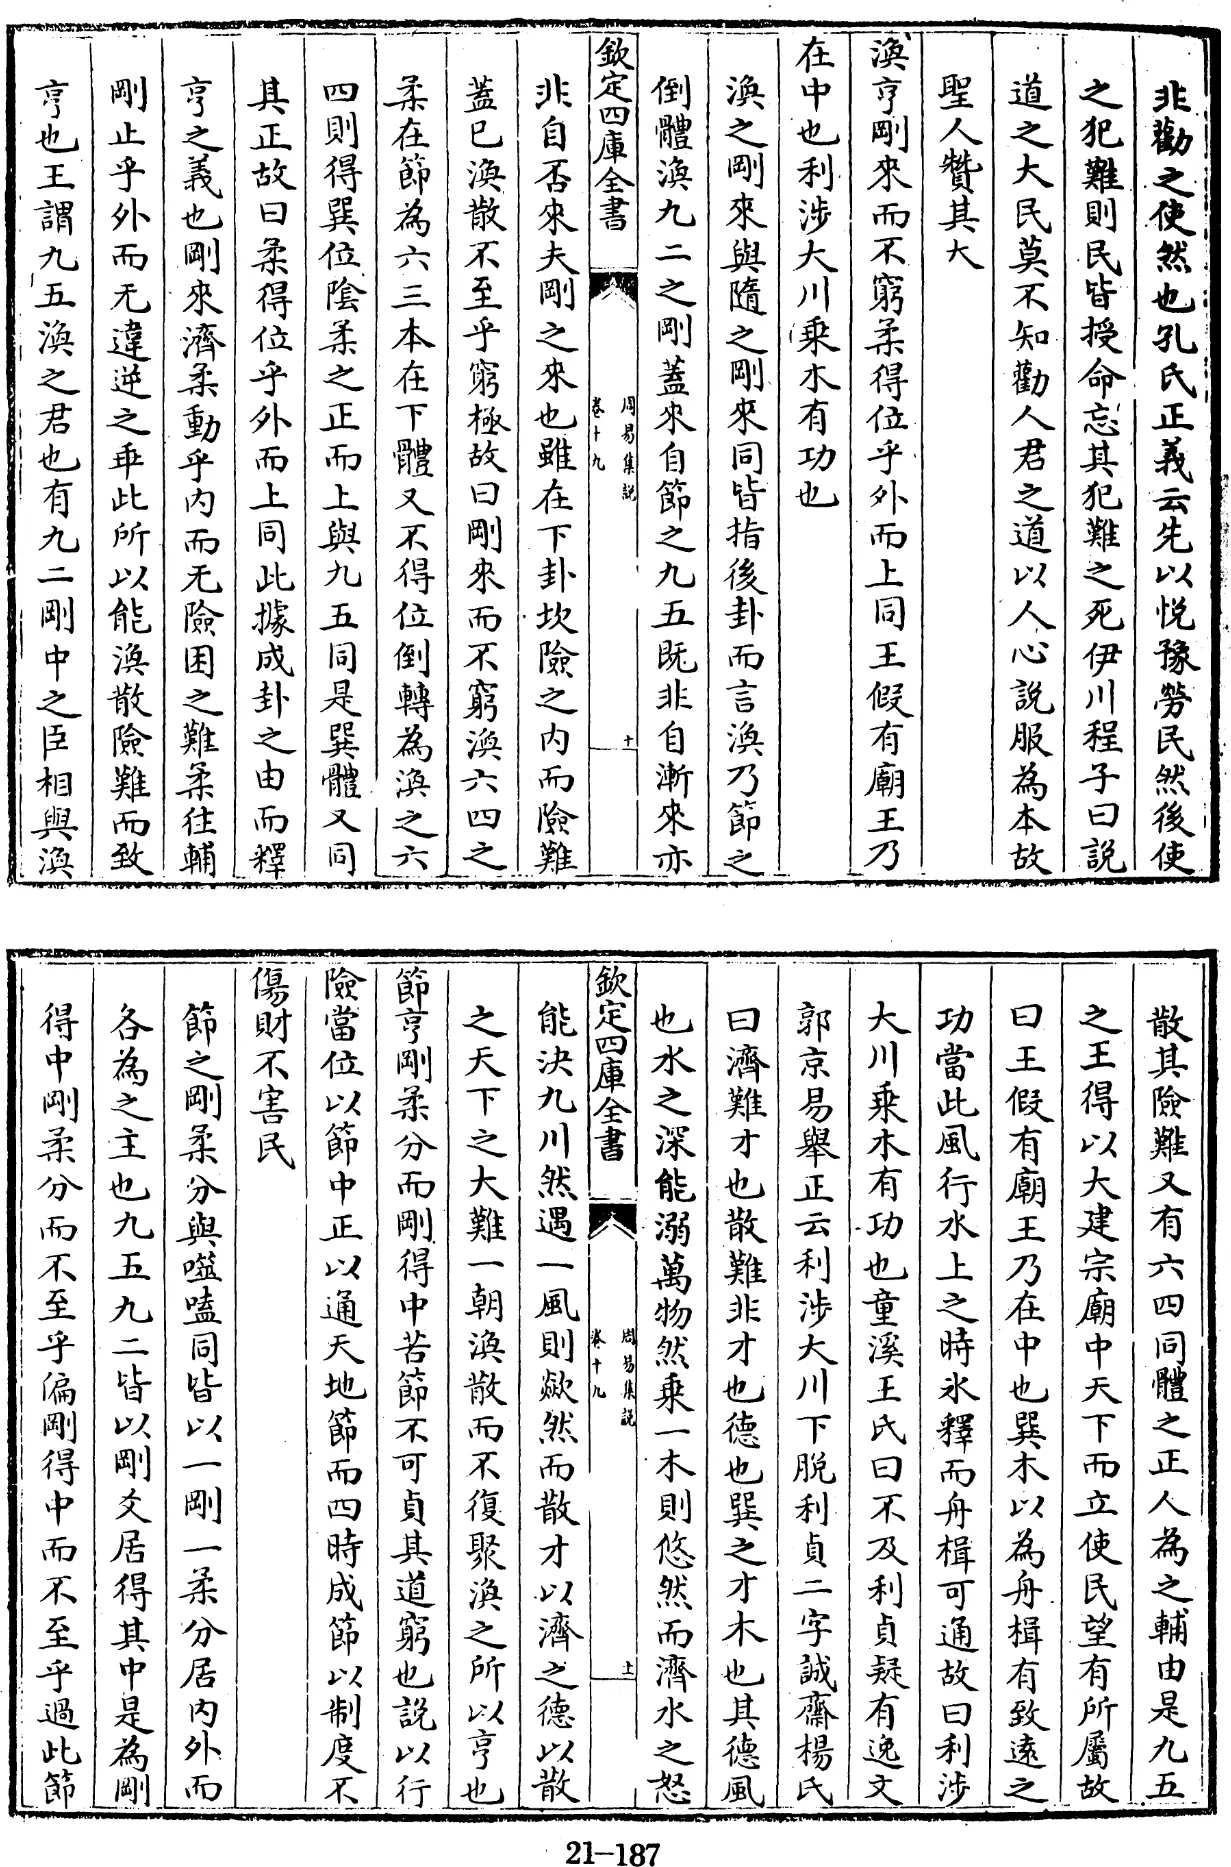 非勸之使然也孔氏正義云先以悅豫勞民然後使
之犯難則民皆授命忘其犯難之死伊川程子曰説
道之大民莫不知勸人君之道以人心説服為本故
聖人贊其大
渙亨剛來而不窮柔得位乎外而上同王假有廟王乃
在中也利涉大川乘木有功也
渙之剛來與隨之剛來同皆指後卦而言渙乃節之
倒體渙九二之剛蓋來自節之九五既非自漸來亦
欽定四庫全書
周易集説
卷十九
十
非自否來夫剛之來也雖在下卦坎險之内而險難
蓋已渙散不至乎窮極故曰剛來而不窮渙六四之
柔在節為六三本在下體又不得位倒轉為渙之六
四則得巽位陰柔之正而上與九五同是巽體又同
其正故曰柔得位乎外而上同此據成卦之由而釋
亨之義也剛來濟柔動乎内而无險困之難柔往輔
剛止乎外而无違逆之乖此所以能渙散險難而致
亨也王謂九五渙之君也有九二剛中之臣相與渙
散其險難又有六四同體之正人為之輔由是九五
之王得以大建宗廟中天下而立使民望有所屬故
曰王假有廟王乃在中也巽木以為舟楫有致遠之
功當此風行水上之時氷釋而舟楫可通故曰利涉
大川乘木有功也童溪王氏曰不及利貞疑有逸文
郭京易舉正云利涉大川下脱利貞二字誠齋楊氏
曰濟難才也散難非才也德也巽之才木也其德風
也水之深能溺萬物然乘一木則悠然而濟水之怒
欽定四庫全書
周易集説
卷十九
十一
能決九川然遇一風則歘然而散才以濟之德以散
之天下之大難一朝渙散而不復聚渙之所以亨也
節亨剛柔分而剛得中苦節不可貞其道窮也説以行
險當位以節中正以通天地節而四時成節以制度不
傷財不害民
節之剛柔分與噬嗑同皆以一剛一柔分居内外而
各為之主也九五九二皆以剛爻居得其中是為剛
得中剛柔分而不至乎偏剛得中而不至乎過此節
21-187